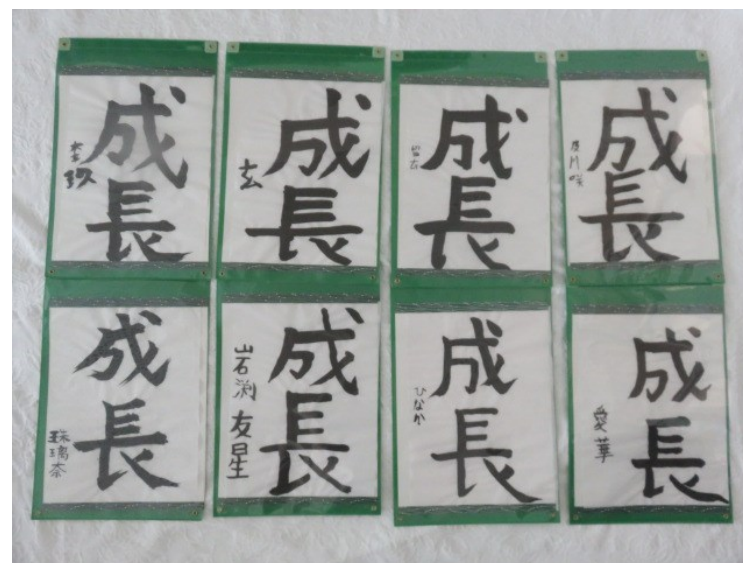 成長
玖
成長
玄
成長
成長
成長
珠璃奈
成長
岩渕友星
成長
ひなか
成長
愛華